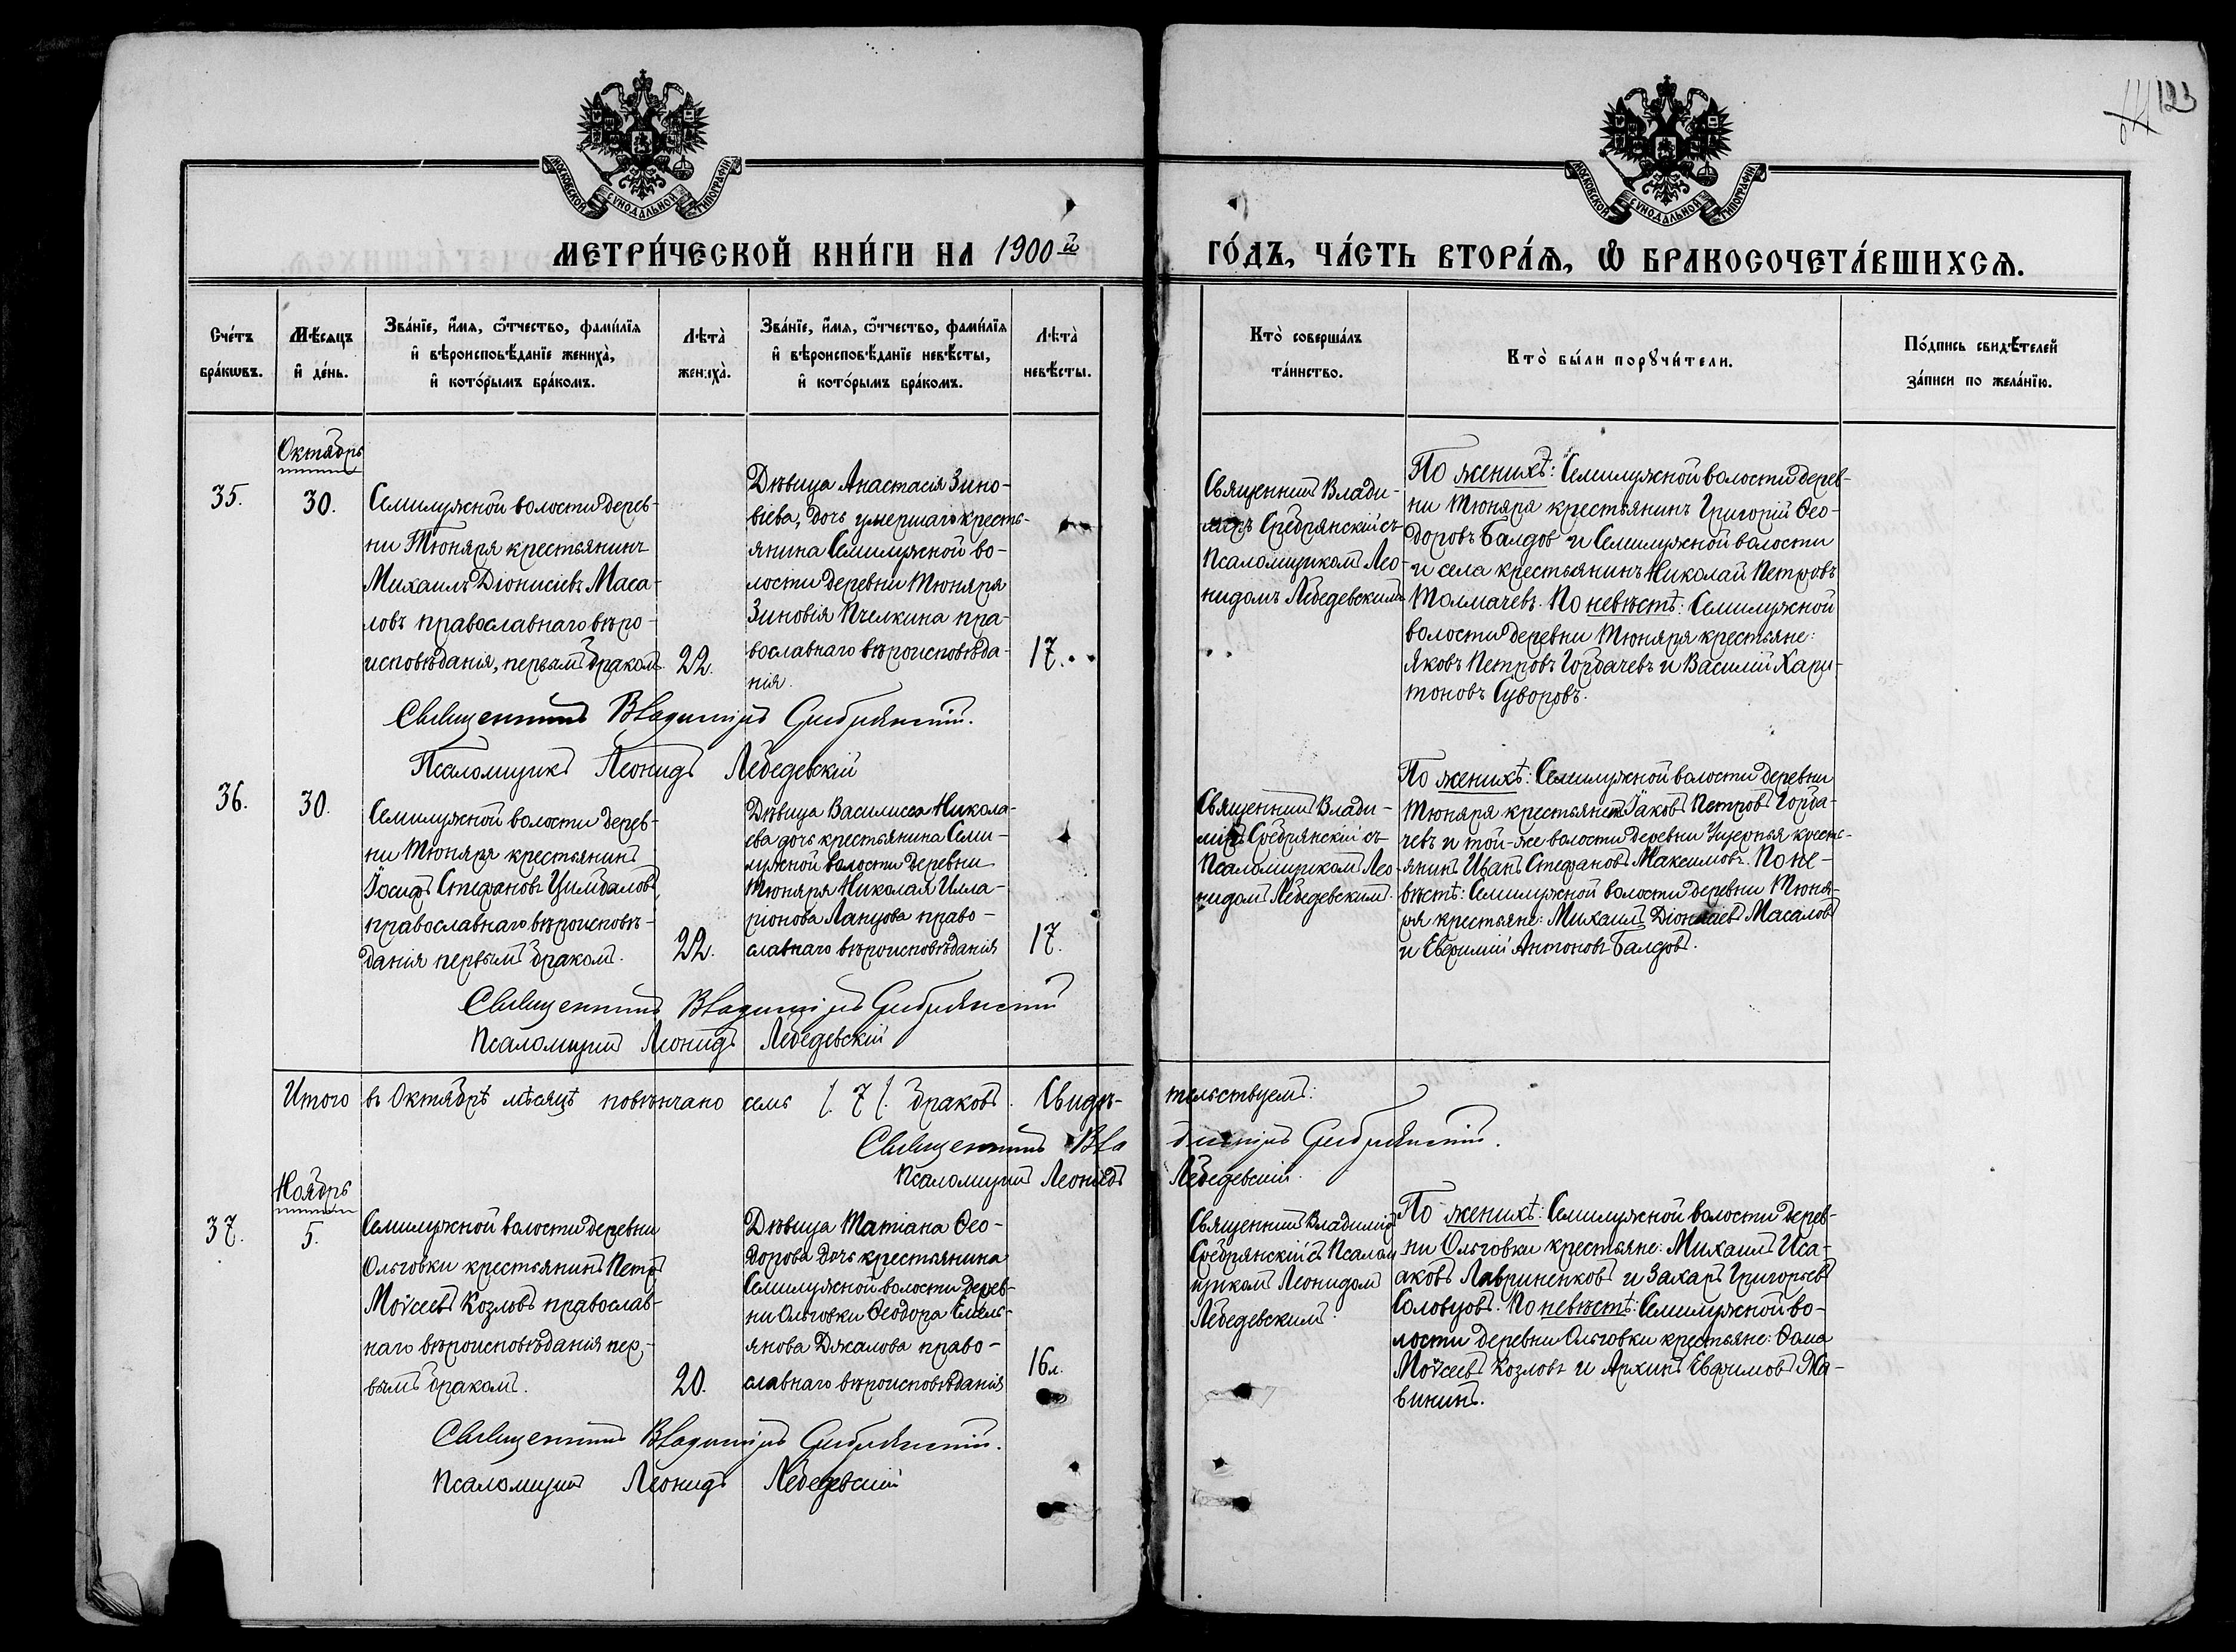 123
МОСКОВСКОЙ СѴНОДАЛЬНОЙ ТИПОГРАФІИ
МОСКОВСКОЙ СѴНОДАЛЬНОЙ ТИПОГРАФІИ
МЕТРИ́ЧЕСКОЙ КНИ́ГИ НА 1900й ГО́ДЪ, ЧА́СТЬ ВТОРА́Ѧ, Ѽ БРАКОСОЧЕТА́ВШИХСѦ.
Сче́тъ
бра́кѡвъ.
Мѣ́сяцъ
и҆ де́нь.
Зва́нїе, и҆́мѧ, ѻ҆́тчество, фами́лїѧ
и҆ вѣроисповѣ́данїе жениха̀,
и҆ кото́рымъ бра́комъ.
Лѣта̀
жениха̀.
Зва́нїе, и҆́мѧ, ѻ҆́тчество, фами́лїѧ
и҆ вѣроисповѣ́данїе невѣ́сты,
и҆ кото́рымъ бра́комъ.
Лѣта̀
невѣ́сты.
Кто̀ соверша́лъ
та́инство.
Кто̀ бы́ли порꙋчи́тели.
По́дпись свидѣ́телей
за́писи по жела́нїю.
Октябрь
35.
30.
Семилужной волости дерев-
ни Тюняря крестьянинъ
Михаилъ Діонисіевъ Маса-
ловъ православнаго вѣро-
исповѣданія, первымъ бракомъ
22.
Дѣвица Анастасія Зино-
віева, дочь умершаго кресть-
янина Семилужной во-
лости деревни Тюняря
Зиновія Пчелкина пра-
вославнаго вѣроисповѣда-
нія.
17.
Священникъ Влади-
міръ Сребрянскій съ
Псаломщикомъ Лео-
нидомъ Лебедевскимъ
По женихѣ: Семилужной волости дерев-
ни Тюняря крестьянинъ Григорій Ѳео-
доровъ Балдовъ и Семилужной волости
и села крестьянинъ Николай Петровъ
Толмачевъ. По невѣстѣ: Семилужной
волости деревни Тюняря крестьяне:
Яковъ Петровъ Горбачевъ и Василій Хари-
тоновъ Суворовъ.
Священникъ Владиміръ Сребрянскій.
Псаломщикъ Леонидъ Лебедевскій
36.
30.
Семилужной волости дерев-
ни Тюняря крестьянинъ
Іосифъ Стефановъ Цимбаловъ,
православнаго вѣроисповѣ-
данія первымъ бракомъ.
22.
Дѣвица Василисса Никола-
ева дочь крестьянина Семи-
лужной волости деревни
Тюняря Николая Илла-
ріонова Ланцова право-
славнаго вѣроисповѣданія
17.
Священникъ Влади-
міръ Сребрянскій съ
Псаломщикомъ Лео-
нидомъ Лебедевскимъ.
По женихѣ: Семилужной волости деревни
Тюняря крестьянинъ Іаковъ Петровъ Горба-
чевъ и той-же волости деревни кресть-
янинъ Иванъ Стефановъ Максимовъ. По не-
вѣстѣ: Семилужной волости деревни Тюня-
ря крестьяне: Михаилъ Діонисіевъ Масаловъ
и Евфимій Антоновъ Балдовъ.
Священникъ Владиміръ Сребрянскій
Псаломщикъ Леонидъ Лебедевскій
Итого въ Октябрѣ мѣсяцѣ повѣнчано семь /. 7 /. браковъ. Свидѣ-тельствуемъ:
Священникъ Владиміръ Сребрянскій.
Псаломщикъ Леонидъ Лебедевскій.
Ноябрь
37.
5.
Семилужной волости деревни
Ольговки крестьянинъ Петръ
Моѵсеевъ Козловъ православ-
наго вѣроисповѣданія пер-
вымъ бракомъ.
20.
Дѣвица Татіана Ѳео-
дорова дочь крестьянина
Семилужной волости дерев-
ни Ольговки Ѳеодора Емель-
янова Джалова право-
славнаго вѣроисповѣданія
16л.
Священникъ Владиміръ
Сребрянскій съ Псалом
щикомъ Леонидомъ
Лебедевскимъ.
По женихѣ: Семилужной волости дерев-
ни Ольговки крестьяне: Михаилъ Иса-
аковъ Лавриненковъ и Захаръ Григорьевъ
Соловцовъ. По невѣстѣ: Семилужной во-
лости деревни Ольговки крестьяне: Ѳома
Моѵсеевъ Козловъ и Архипъ Евфимовъ Жа-
викинъ.
Священникъ Владиміръ Сребрянскій.
Псаломщикъ Леонидъ Лебедевскій